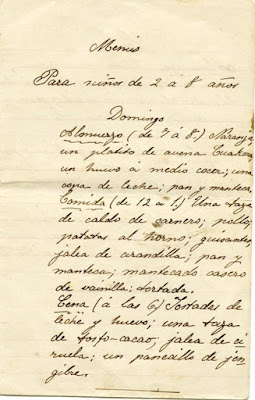 Menus
Para niños de 2 á 8 años
Domingo
Almuerzo (de 7 á 8.) Naranja;
un platito de avena Cuakar;
un huevo á medio cocer; una
copa de leche; pan y manteca.
Comida (de 12 á 1.) Una taza
de caldo de carnero; pollo;
patatas al horno; guisantes;
jalea de arandilla; pan y
manteca; mantecado casero
de vainilla; tortada.
Cena (á las 6) Tostadas de
leche y huevo; una taza
de fosfo-cacao; jalea de ci
ruela; un panecillo de jen
gibre.